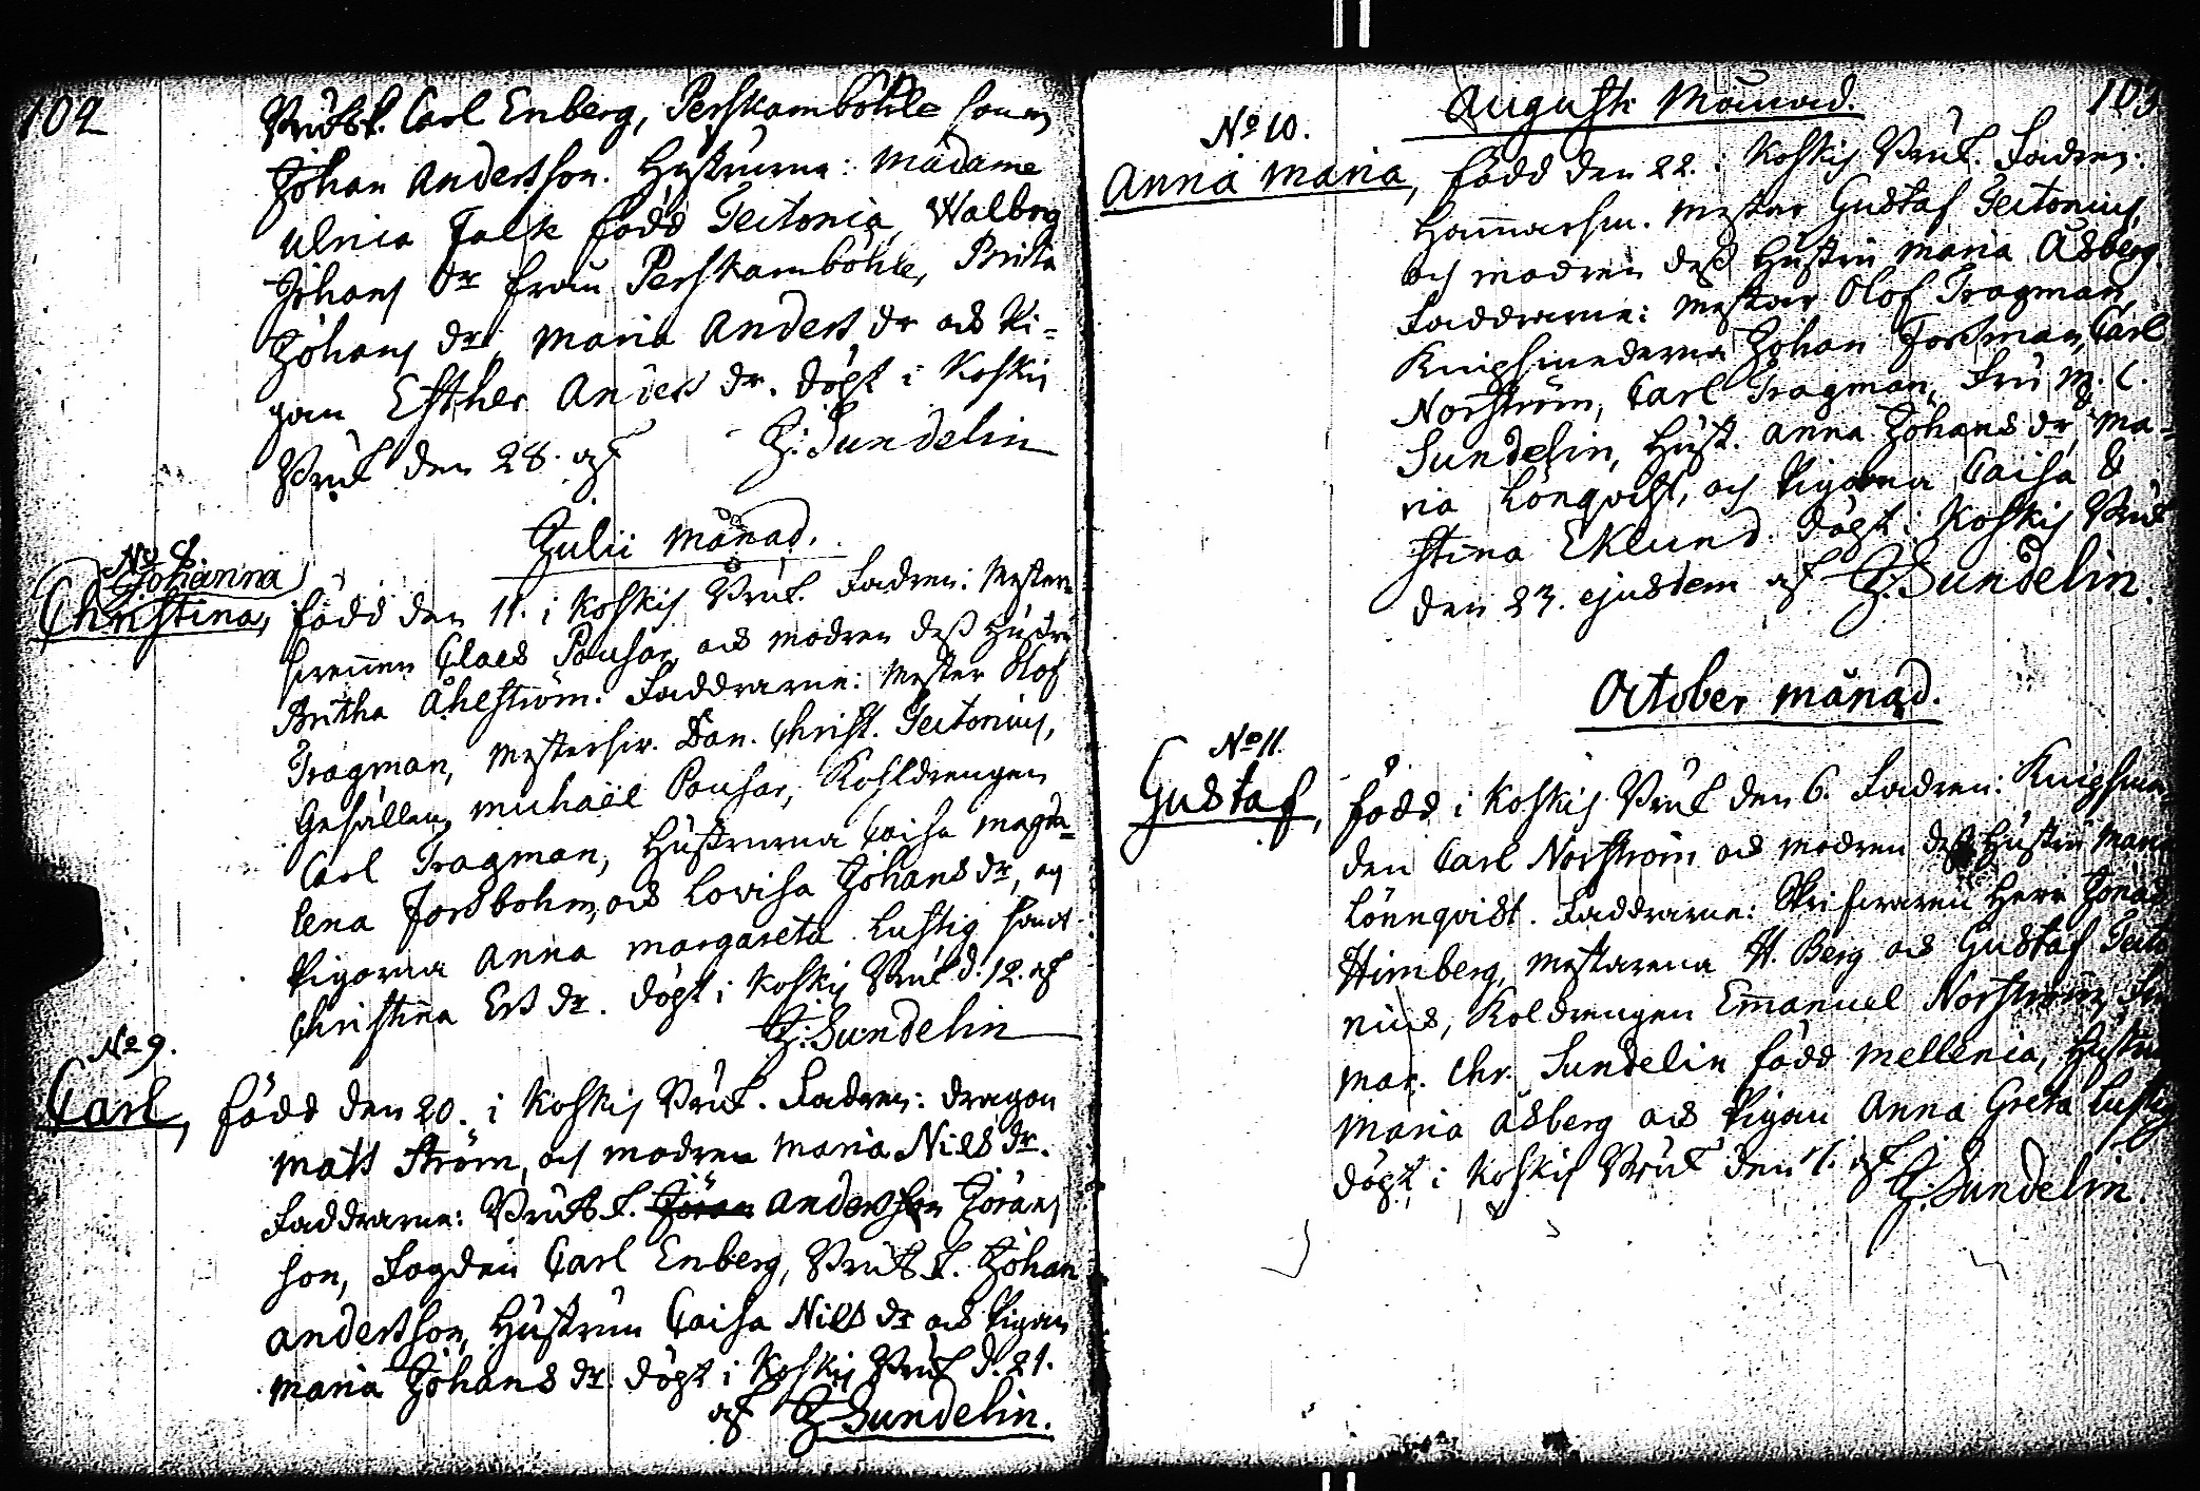 102
Bruksk. Carl Enberg, Perskamböhle sonen
Johan Andersson. Hustrurna: Madame
Ulrica Falk född Teitonia, Walborg
Johans dr från Perskamböhle, Britta
Johans dr, Maria Anders dr och Pi=
gan Esther Anders dr. Döpt i Koskis
Bruk den 28. af J. Sundelin
Julii Månad.
No 8.
Johanna
Christina, född den 11. i Koskis Bruk. Fadren: Mester-
svennen Claes Pousar, och modren dess Hustru
Britha Åhlström. Faddrarne: Mester Olof
Tragman, Mestersv. Dan. Christ. Teitonius,
Gesällen Michaël Pousar, Kohldrengen
Carl Tragman, Hustrurna Caisa Magda=
lena Forsbohm, och Lovisa Johans dr, och
Pigorna Anna Margareta Lustig samt
Christina Ers dr. Döpt i Koskis Bruk d. 12. af
J. Sundelin
No 9.
Carl, född den 20. i Koskis Bruk. Fadren: Dragon
Matts Ström, och modren Maria Nils dr.
Faddrarne: Bruks k. Jöran Andersson Jörans
son, Fogden Carl Enberg, Bruks k. Johan
Andersson, Hustrun Caisa Nils dr och Pigan
Maria Johans dr. Döpt i Koskis Bruk d. 21.
af J. Sundelin.
103
Augusti Månad.
No 10.
Anna Maria, född den 22. i Koskis Bruk. Fadren:
Hammarsm. Mester Gustaf Teitonius,
och modren dess Hustru Maria Åsberg.
Faddrarne: Mester Olof Tragman,
Knipsmederna Johan Forsman, Carl
Norström, Carl Tragman, Fru M. C.
Sundelin, Hust. Anna Johans dr, & Ma=
ria Lönqvist, och Pigorna Caisa &
Stina Eklund. Döpt i Koskis Bruk
den 23. ejusdem af J. Sundelin.
October månad.
No 11.
Gustaf, född i Koskis Bruk den 6. Fadren: Knipsme-
den Carl Norström och modren dess Hustru Maria
Lönnqvist. Faddrarne: Skrifvaren Herr Jonas
Himberg, Mestarena H. Berg och Gustaf Teito
nius, Koldrengen Emanuel Norström, Fru
Mar. Chr. Sundelin född Mellenia, Hustru
Maria Åsberg och Pigan Anna Greta Lustig
Döpt i Koskis Bruk den af
J. Sundelin.